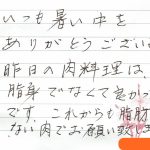 いつも暑い中を
ありがとうござい
昨日の肉料理は、
脂身でなくて良かっ
です。これからも脂肪
ない肉でお願い致しま